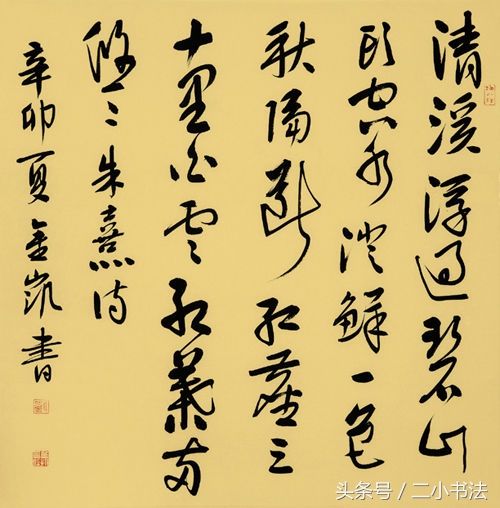 清溪流過碧山
頭空水澄鲜一色
秋隔断红塵三
十里白雲红葉两
悠々朱熹诗
辛卯夏金凯書
头条号 / 二小书法